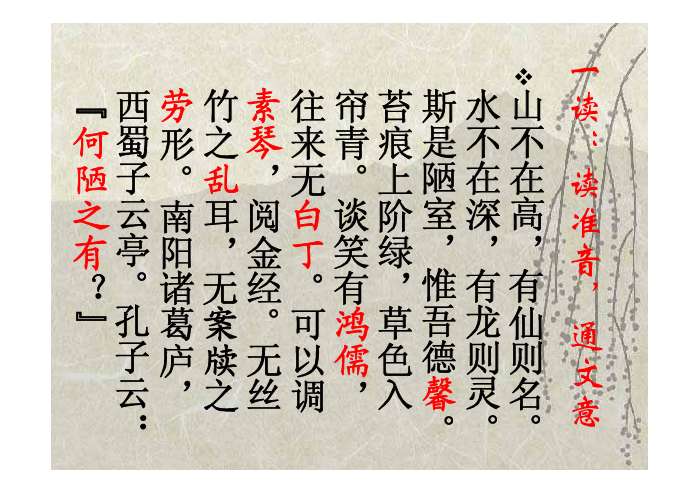 一读：读准音，通文意
❖山不在高，有仙则名。
水不在深，有龙则灵。
斯是陋室，惟吾德馨。
苔痕上阶绿，草色入
帘青。谈笑有鸿儒，
往来无白丁。可以调
素琴，阅金经。无丝
竹之乱耳，无案牍之
劳形。南阳诸葛庐，
西蜀子云亭。孔子云：
『何陋之有？』